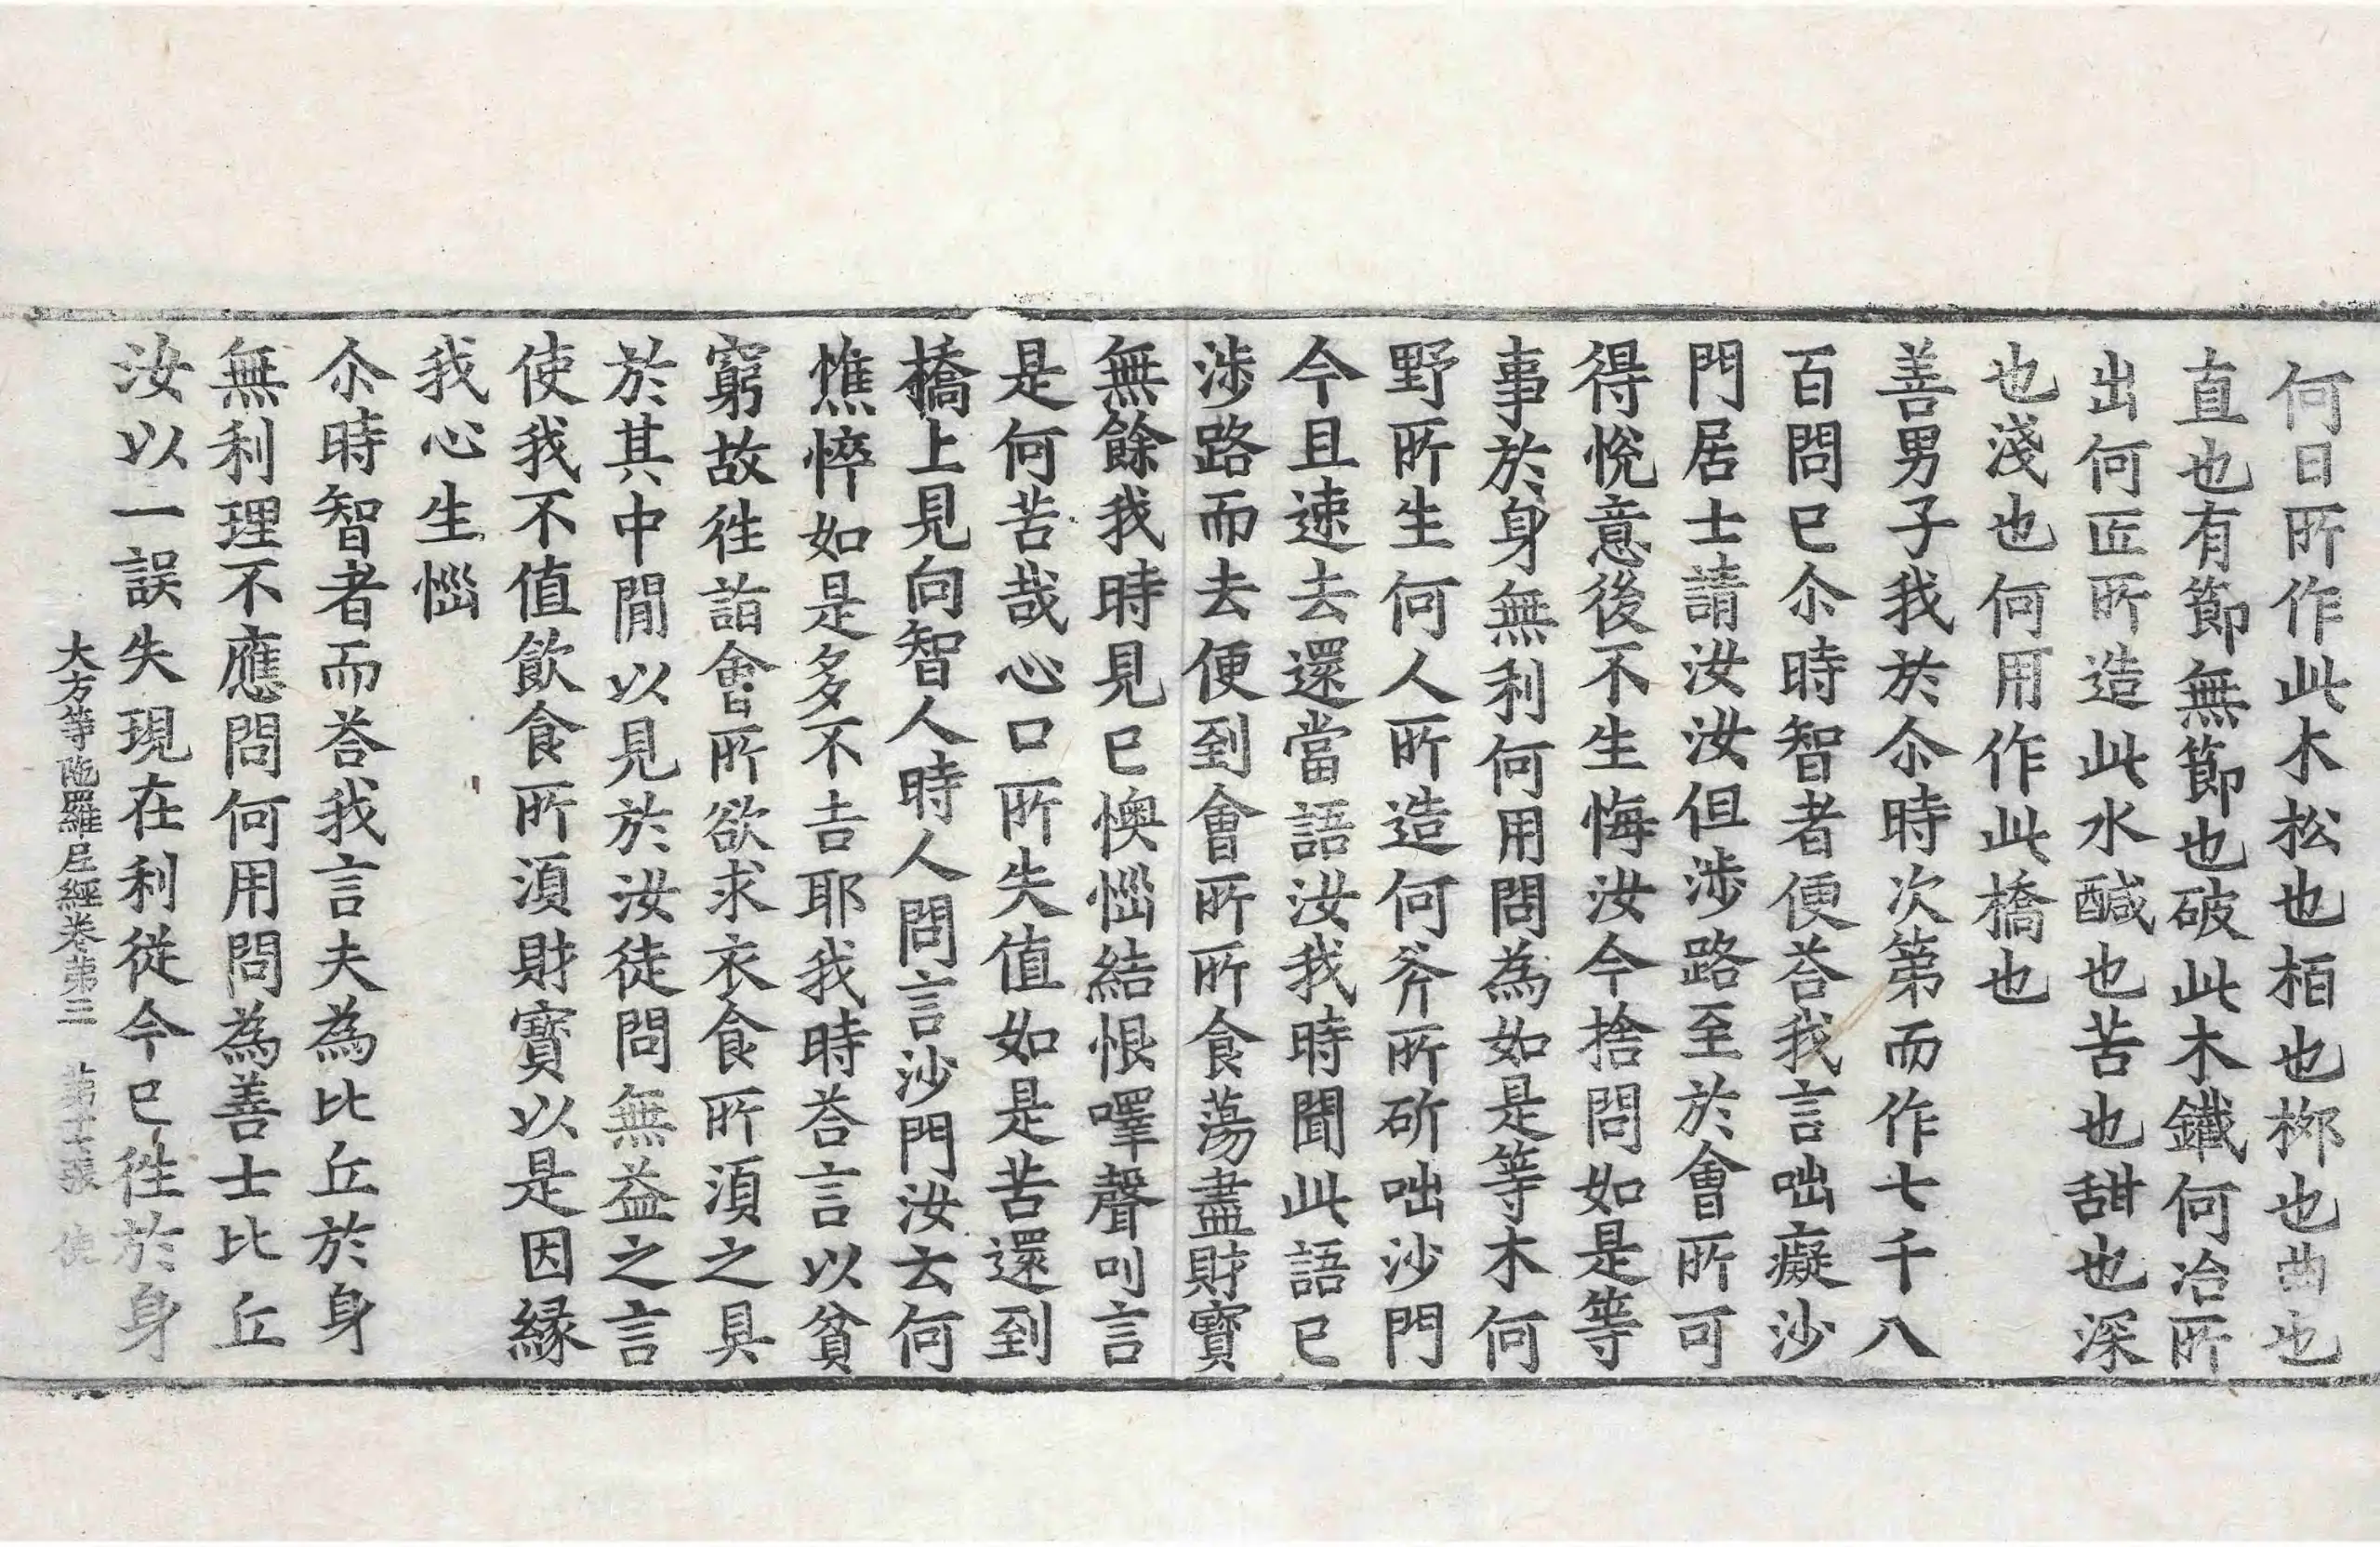 何日所作此木松也栢也栁也曲也
直也有節無節也破此木鐵何冶所
出何匠所造此水醎也苦也甜也深
也淺也何用作此橋也
善男子我於尒時次第而作七千八
百問已尒時智者便荅我言咄癡沙
門居士請汝汝但涉路至於會所可
得悅意後不生悔汝今捨問如是等
事於身無利何用問為如是等木何
野所生何人所造何斧所斫咄沙門
今且速去還當語汝我時聞此語已
涉路而去便到會所所食蕩盡財寶
無餘我時見已懊惱結恨嘽聲叫言
是何苦哉心口所失值如是苦還到
橋上見向智人時人問言沙門汝去何
憔悴如是多不吉耶我時荅言以貧
窮故徃詣會所欲求衣食所湏之具
於其中間以見於汝徒問無益之言
使我不值飲食所湏財寶以是因縁
我心生惱
尒時智者而荅我言夫為比丘於身
無利理不應問何用問為善士比丘
汝以一誤失現在利從今已徃於身
大方等陁羅尼經卷第三 第十二張 使